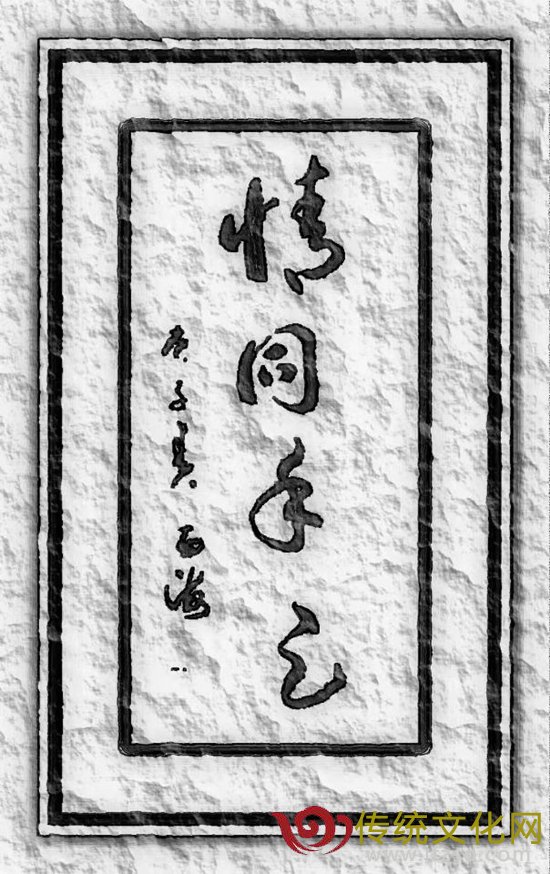 情同手足
庚子春 西海
传统文化网